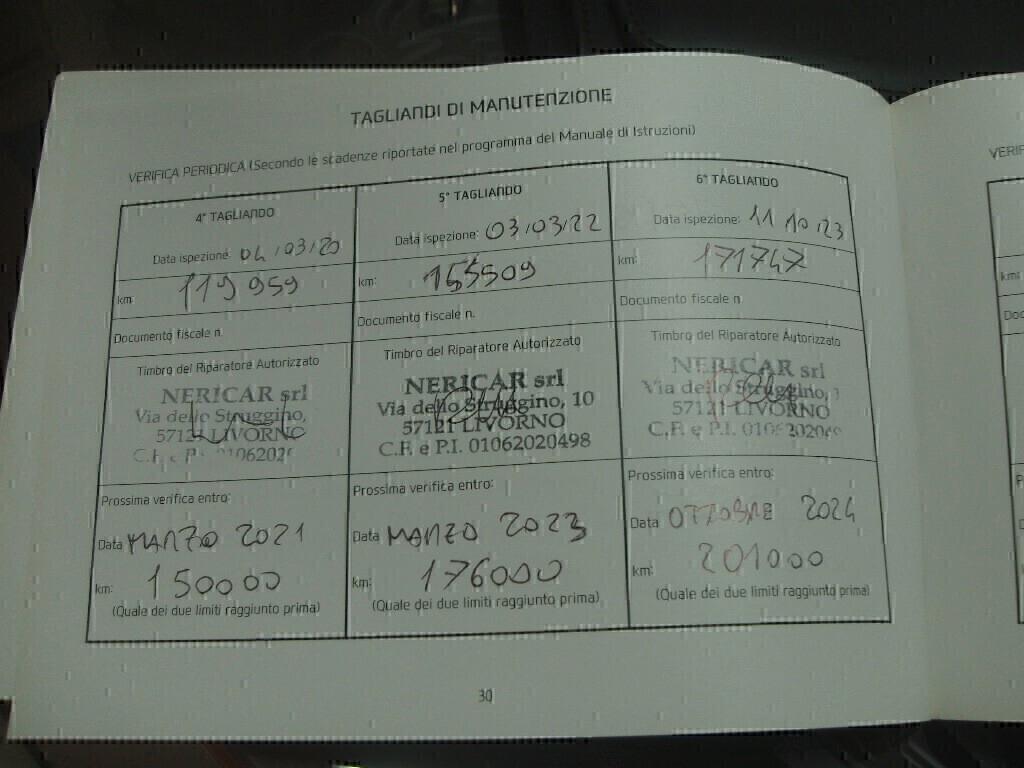 TAGLIANDI DI MANUTENZIONE
VERIFICA PERIODICA (Secondo le scadenze riportate nel programma del Manuale di Istruzioni)
4° TAGLIANDO
Data ispezione: 04/03/20
km: 119 959
Documento fiscale n.
Timbro del Riparatore Autorizzato
NERICAR srl
Via dello Struggino,
57121 LIVORNO
Prossima verifica entro:
Data MARZO 2021
km: 150000
(Quale dei due limiti raggiunto prima)
5° TAGLIANDO
Data ispezione: 03/03/22
km: 155509
Documento fiscale n.
Timbro del Riparatore Autorizzato
NERICAR srl
Via dello Struggino, 10
57121 LIVORNO
C.F. e P.I. 01062020498
Prossima verifica entro:
Data MARZO 2023
km: 176000
(Quale dei due limiti raggiunto prima)
6° TAGLIANDO
Data ispezione: 11 10 23
km: 171747
Documento fiscale n
Timbro del Riparatore Autorizzato
NERICAR srl
Via dello Struggino,
57121 LIVORNO
C.F. e P.I.
Prossima verifica entro:
Data OTTOBRE 2024
km: 201000
(Quale dei due limiti raggiunto prima)
30
VERIF
km: